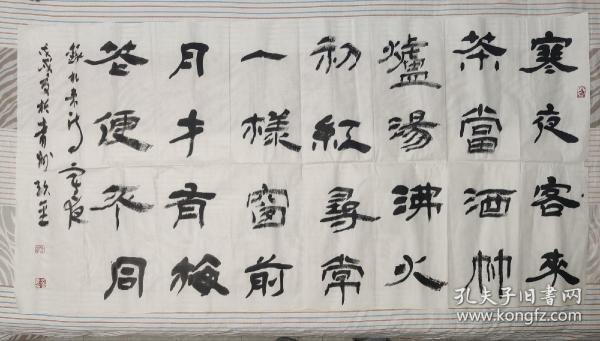 寒夜客來
茶當酒竹
爐湯沸火
初紅尋常
一樣窗前
月才有梅
花便不同
錄杜耒詩寒夜
於青州
孔夫子旧书网
kongfz.com